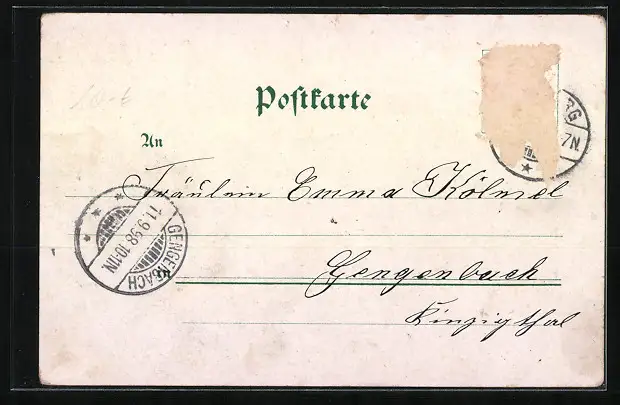 Postkarte
An
Fräulein Emma Kölmel
GENGENBACH
11.9.98.10-11N.
in
Gengenbach
Kinzigthal
RG
7N